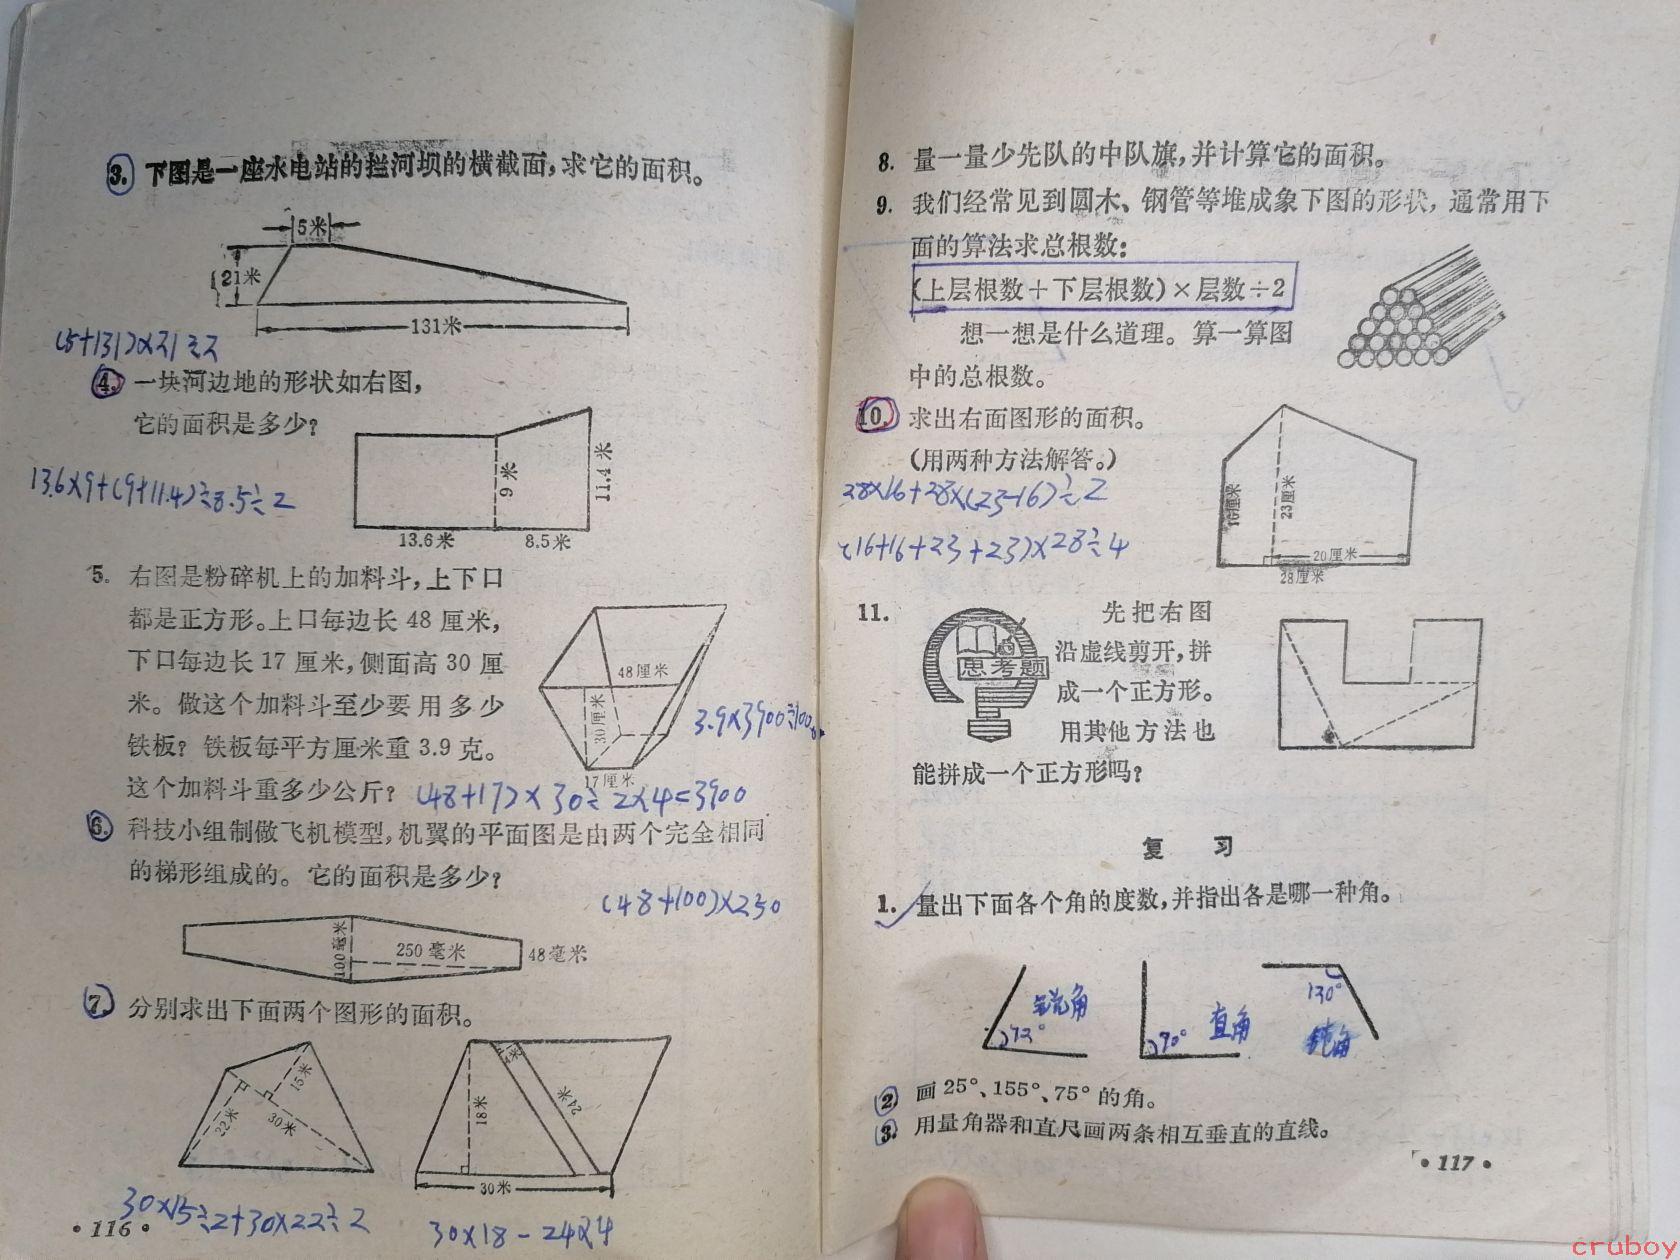 3. 下图是一座水电站的拦河坝的横截面,求它的面积。
5米
21米
131米
(5+131)×21÷2
4. 一块河边地的形状如右图,
它的面积是多少?
9米
11.4米
13.6米
8.5米
13.6×9+(9+11.4)÷8.5÷2
5. 右图是粉碎机上的加料斗,上下口
都是正方形。上口每边长 48 厘米,
下口每边长 17 厘米,侧面高 30 厘
米。做这个加料斗至少要用多少
铁板? 铁板每平方厘米重 3.9 克。
这个加料斗重多少公斤?
48厘米
30厘米
17厘米
(48+17)×30÷2×4=3900
6. 科技小组制做飞机模型,机翼的平面图是由两个完全相同
的梯形组成的。它的面积是多少?
(48+100)×250
100毫米
250 毫米
48毫米
7. 分别求出下面两个图形的面积。
15米
22米
30米
4米
24米
18米
30米
30×15÷2+30×22÷2
30×18-24×4
• 116 •
8. 量一量少先队的中队旗,并计算它的面积。
9. 我们经常见到圆木、钢管等堆成象下图的形状,通常用下
面的算法求总根数:
(上层根数+下层根数)×层数÷2
想一想是什么道理。算一算图
中的总根数。
10. 求出右面图形的面积。
(用两种方法解答。)
28×16+28×(23-16)÷2
(16+16+23+23)×28÷4
16厘米
23厘米
20厘米
28厘米
11. 先把右图
沿虚线剪开,拼
思考题
成一个正方形。
用其他方法也
能拼成一个正方形吗?
复 习
1. 量出下面各个角的度数,并指出各是哪一种角。
锐角
90°
直角
130°
钝角
2. 画 25°、155°、75° 的角。
3. 用量角器和直尺画两条相互垂直的直线。
• 117 •
cruboy